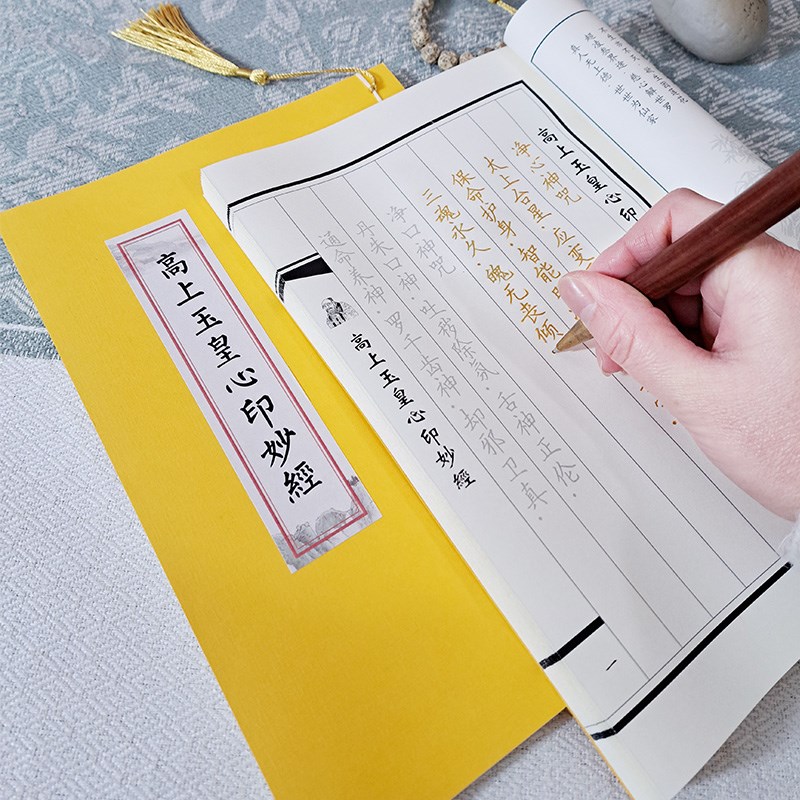 高上玉皇心印妙經
真人无上德·世世为仙家
高上玉皇心印
净心神咒
太上台星·应变
保命护身·智能
三魂永久·魄无丧倾
净口神咒
丹朱口神·吐秽除氛·舌神正伦·
通命养神·罗千齿神·却邪卫真·
高上玉皇心印妙經
一